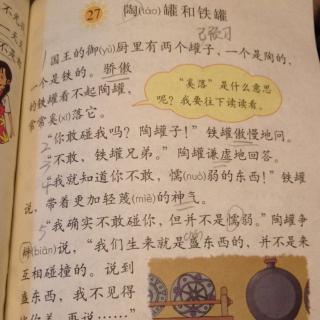 27 陶(táo)罐和铁罐
已预习
1 国王的御(yù)厨里有两个罐子,一个是陶的,
一个是铁的。骄傲
的铁罐看不起陶罐,
常常奚(xī)落它。
“奚落”是什么意思
呢?我要往下读读看。
2 “你敢碰我吗?陶罐子!”铁罐傲慢地问。
3 “不敢,铁罐兄弟。”陶罐谦虚地回答。
4 “我就知道你不敢,懦(nuò)弱的东西!”铁罐
说,带着更加轻蔑(miè)的神气。
5 “我确实不敢碰你,但并不是懦弱。”陶罐争
辩(biàn)说,“我们生来就是盛东西的,并不是来
chéng
互相碰撞的。说到
盛东西,我不见得